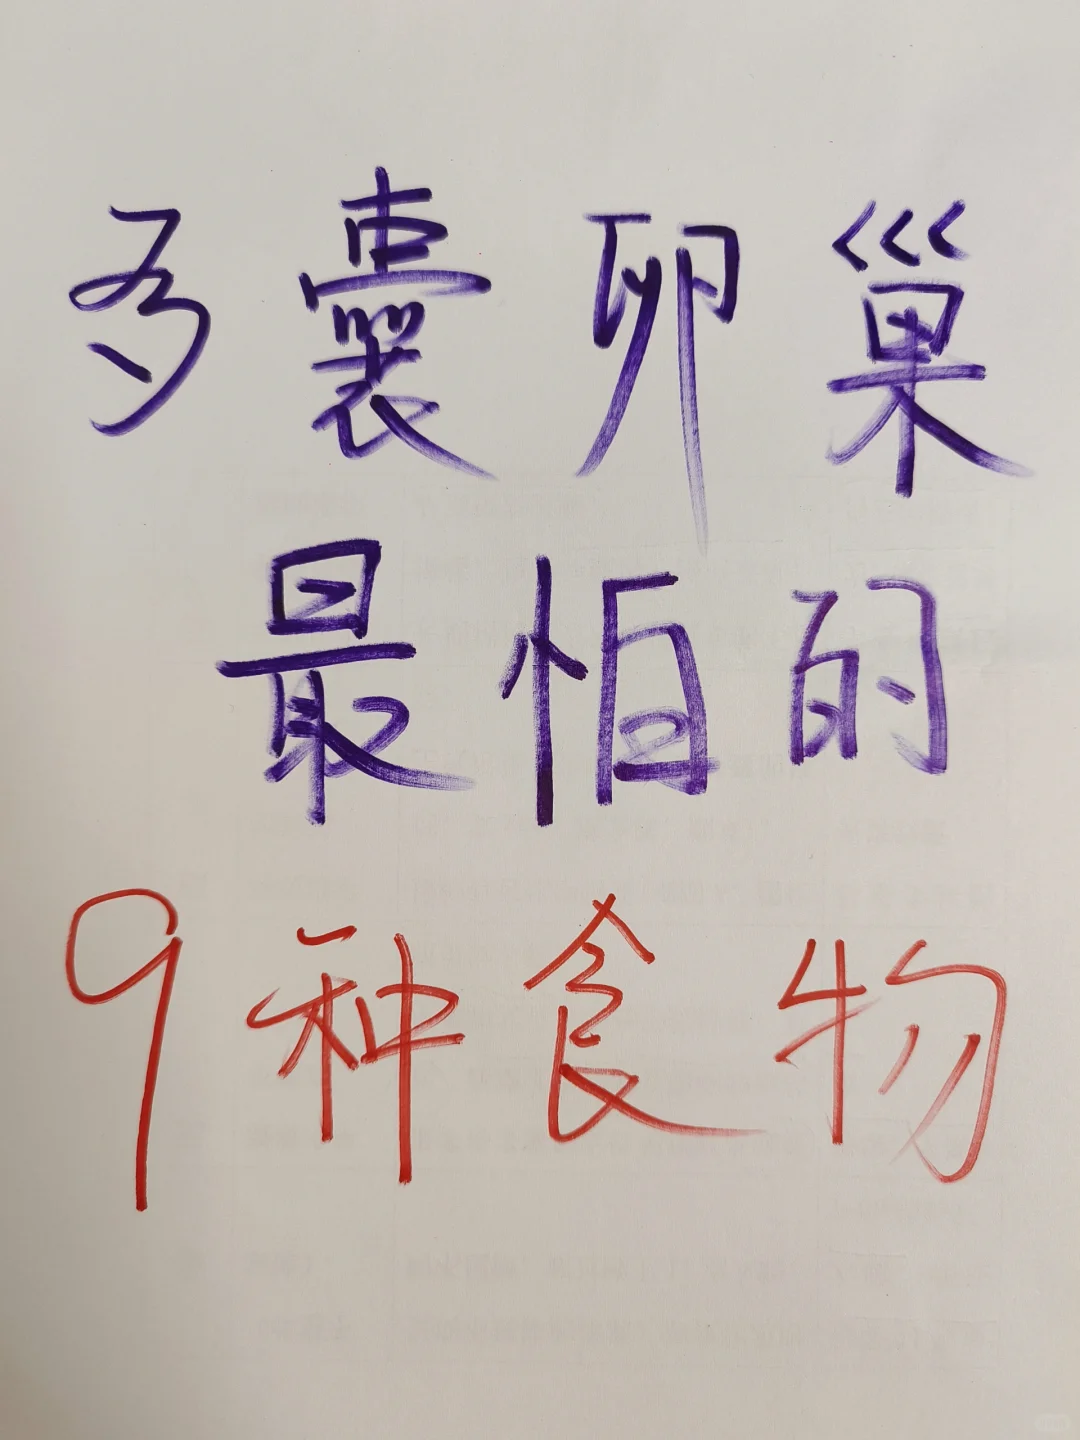 多囊卵巢
最怕的
9种食物